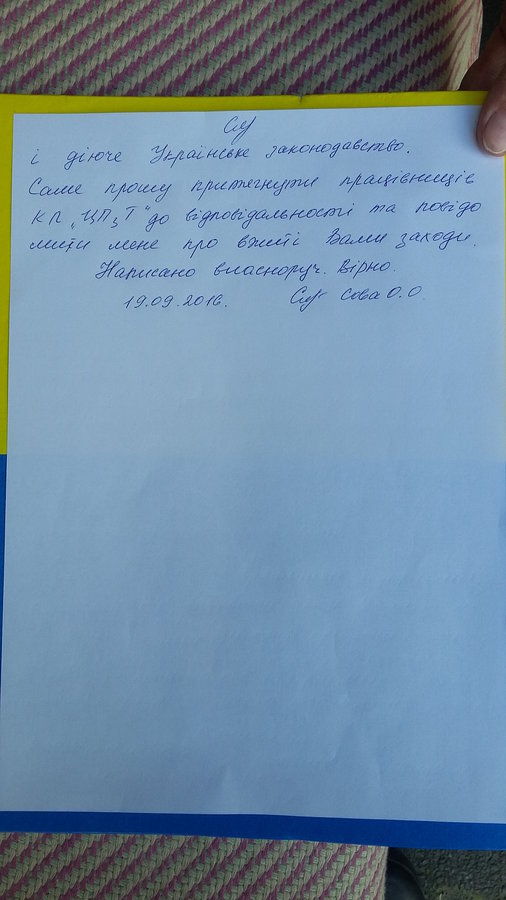 і діюче Українське законодавство.
Саме прошу притягнути працівників
КП „ЦПзТ" до відповідальності та повідо
мити мене про вжиті Вами заходи.
Написано власноруч. Вірно.
19.09.2016. Сова О.О.